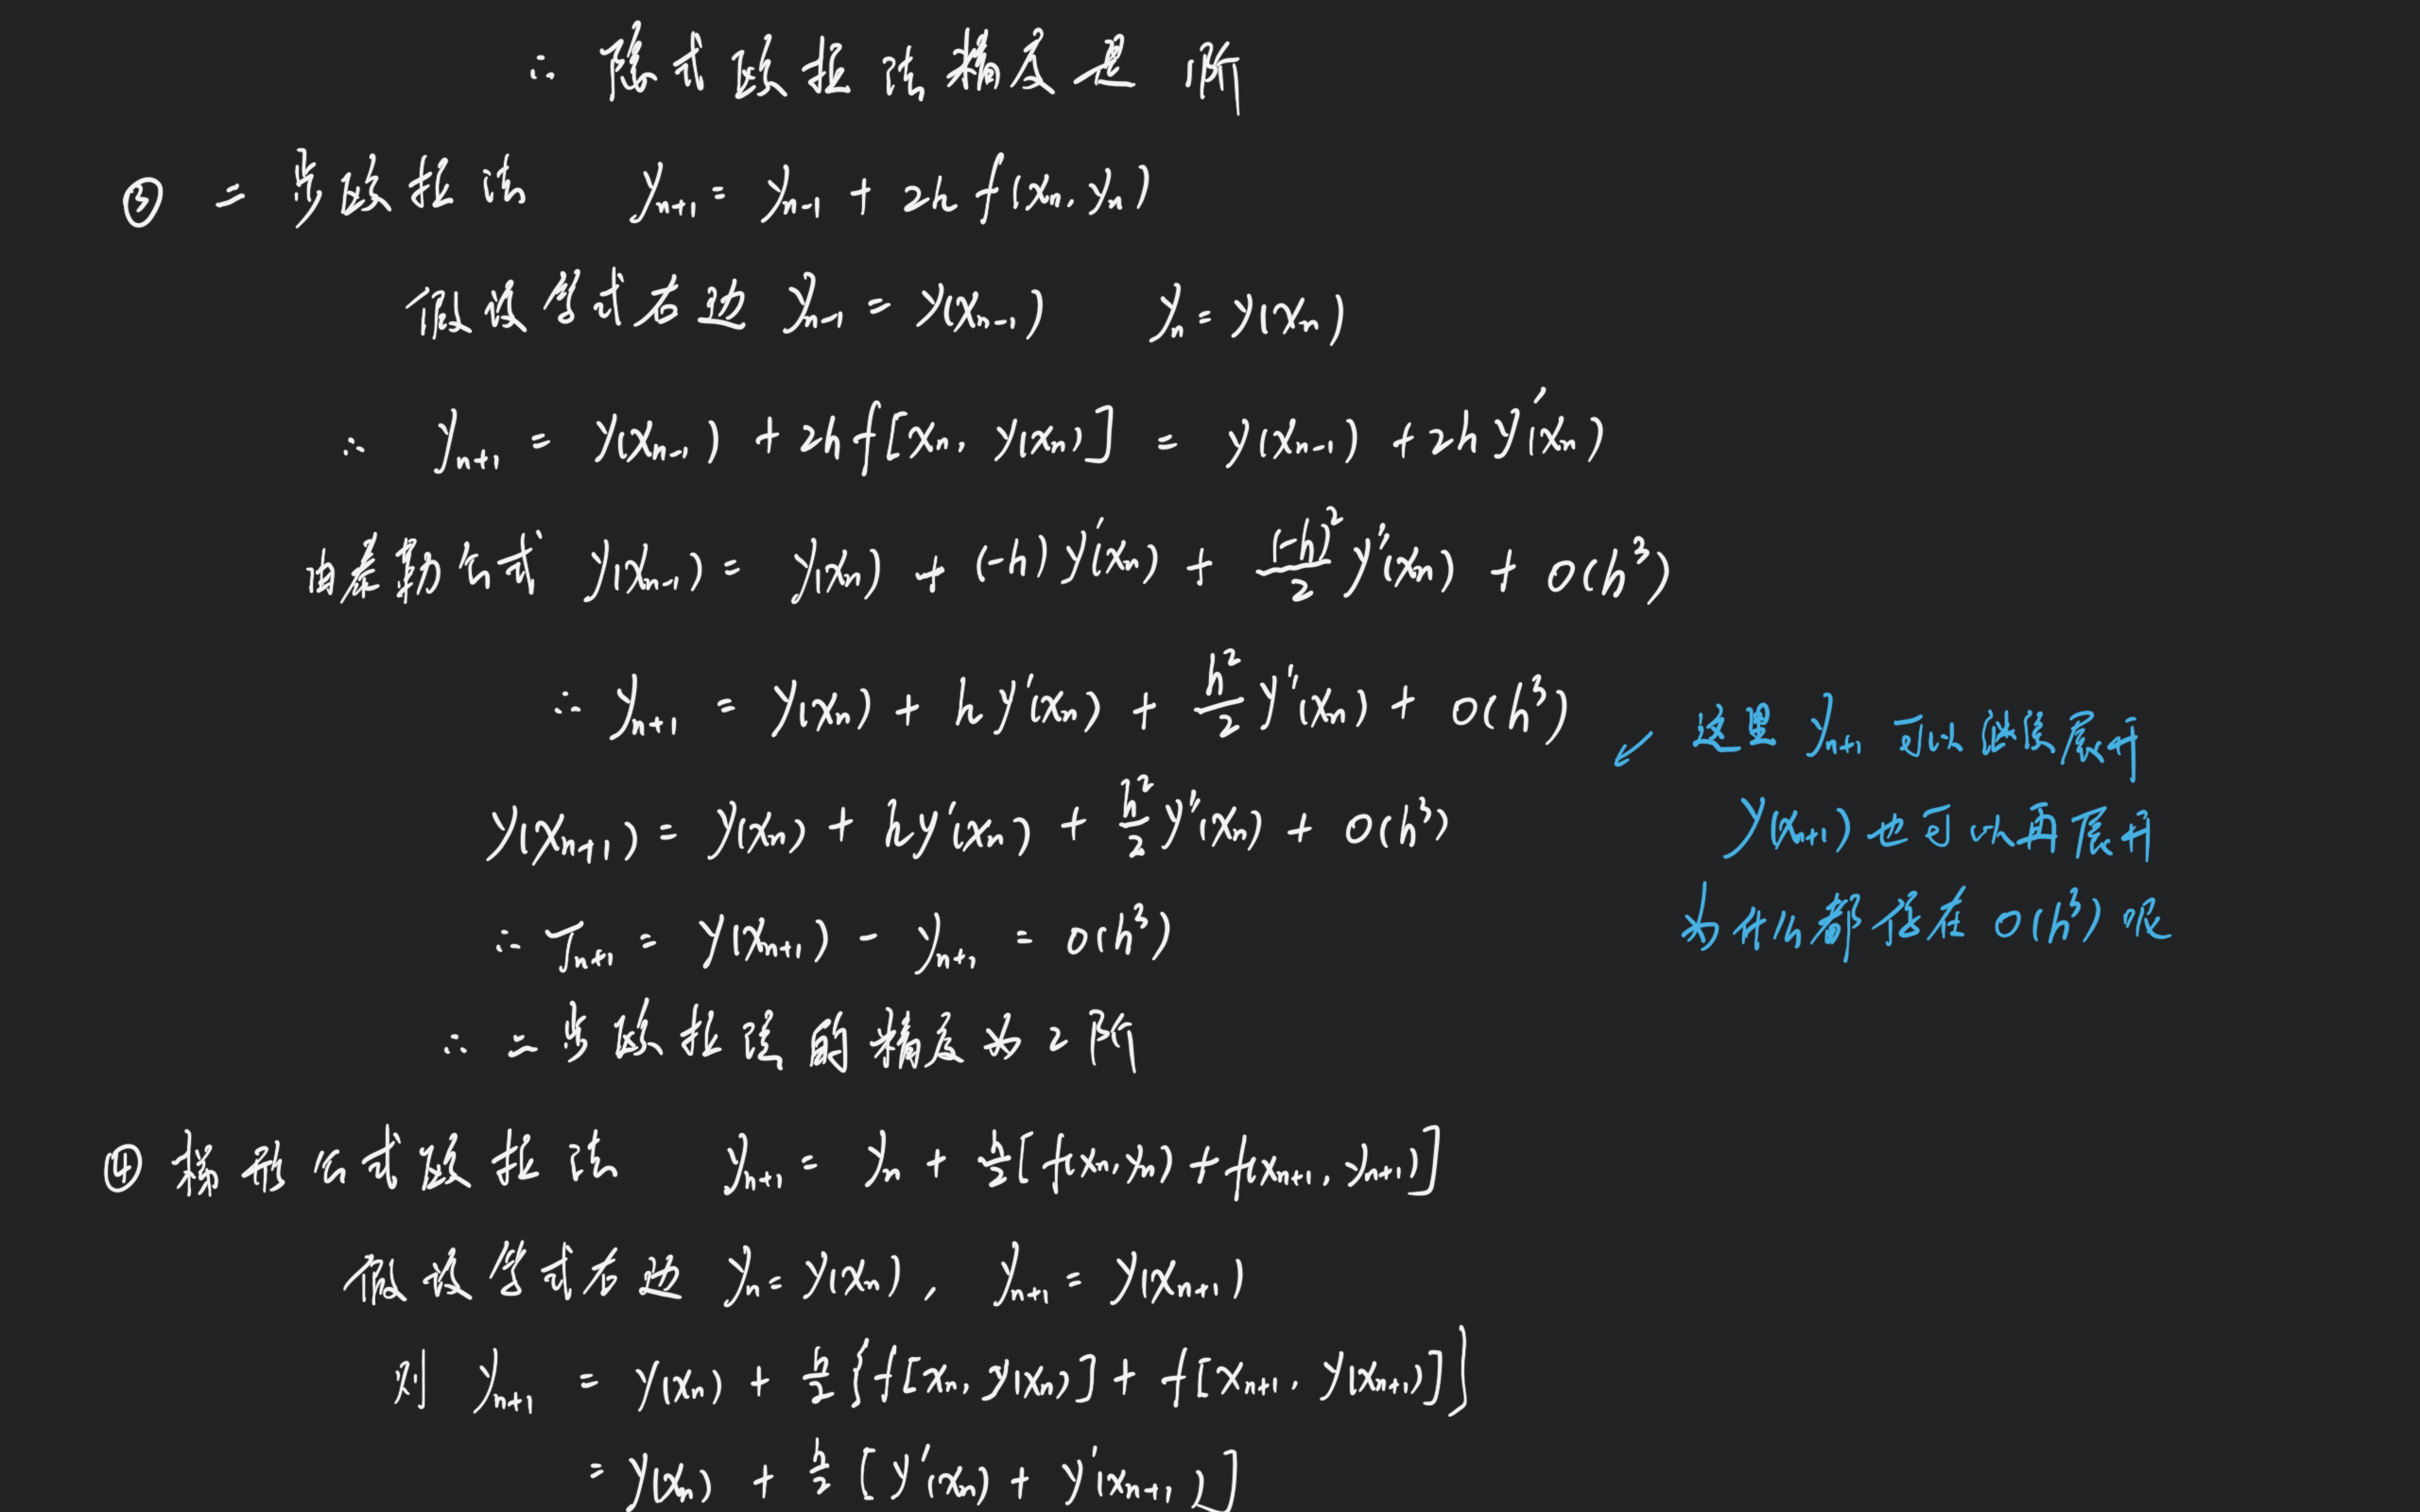 ∴ 隐式欧拉法精度是 1阶
③ 二步欧拉法 yₙ₊₁ = yₙ₋₁ + 2h f(xₙ, yₙ)
假设等式右边 yₙ₋₁ = y(xₙ₋₁) yₙ = y(xₙ)
∴ yₙ₊₁ = y(xₙ₋₁) + 2h f[xₙ, y(xₙ)] = y(xₙ₋₁) + 2h y'(xₙ)
由泰勒公式 y(xₙ₋₁) = y(xₙ) + (-h) y'(xₙ) + (-h)²/2 y''(xₙ) + O(h³)
∴ yₙ₊₁ = y(xₙ) + h y'(xₙ) + h²/2 y''(xₙ) + O(h³)
↙ 这里 yₙ₊₁ 可以继续展开
y(xₙ₊₁) = y(xₙ) + h y'(xₙ) + h²/2 y''(xₙ) + O(h³)
y(xₙ₊₁) 也可以再展开
∴ Tₙ₊₁ = y(xₙ₊₁) - yₙ₊₁ = O(h³)
为什么都停在 O(h³) 呢
∴ 二步欧拉法的精度为 2 阶
④ 梯形公式欧拉法 yₙ₊₁ = yₙ + h/2 [f(xₙ, yₙ) + f(xₙ₊₁, yₙ₊₁)]
假设等式右边 yₙ = y(xₙ), yₙ₊₁ = y(xₙ₊₁)
则 yₙ₊₁ = y(xₙ) + h/2 {f[xₙ, y(xₙ)] + f[xₙ₊₁, y(xₙ₊₁)]}
= y(xₙ) + h/2 [y'(xₙ) + y'(xₙ₊₁)]